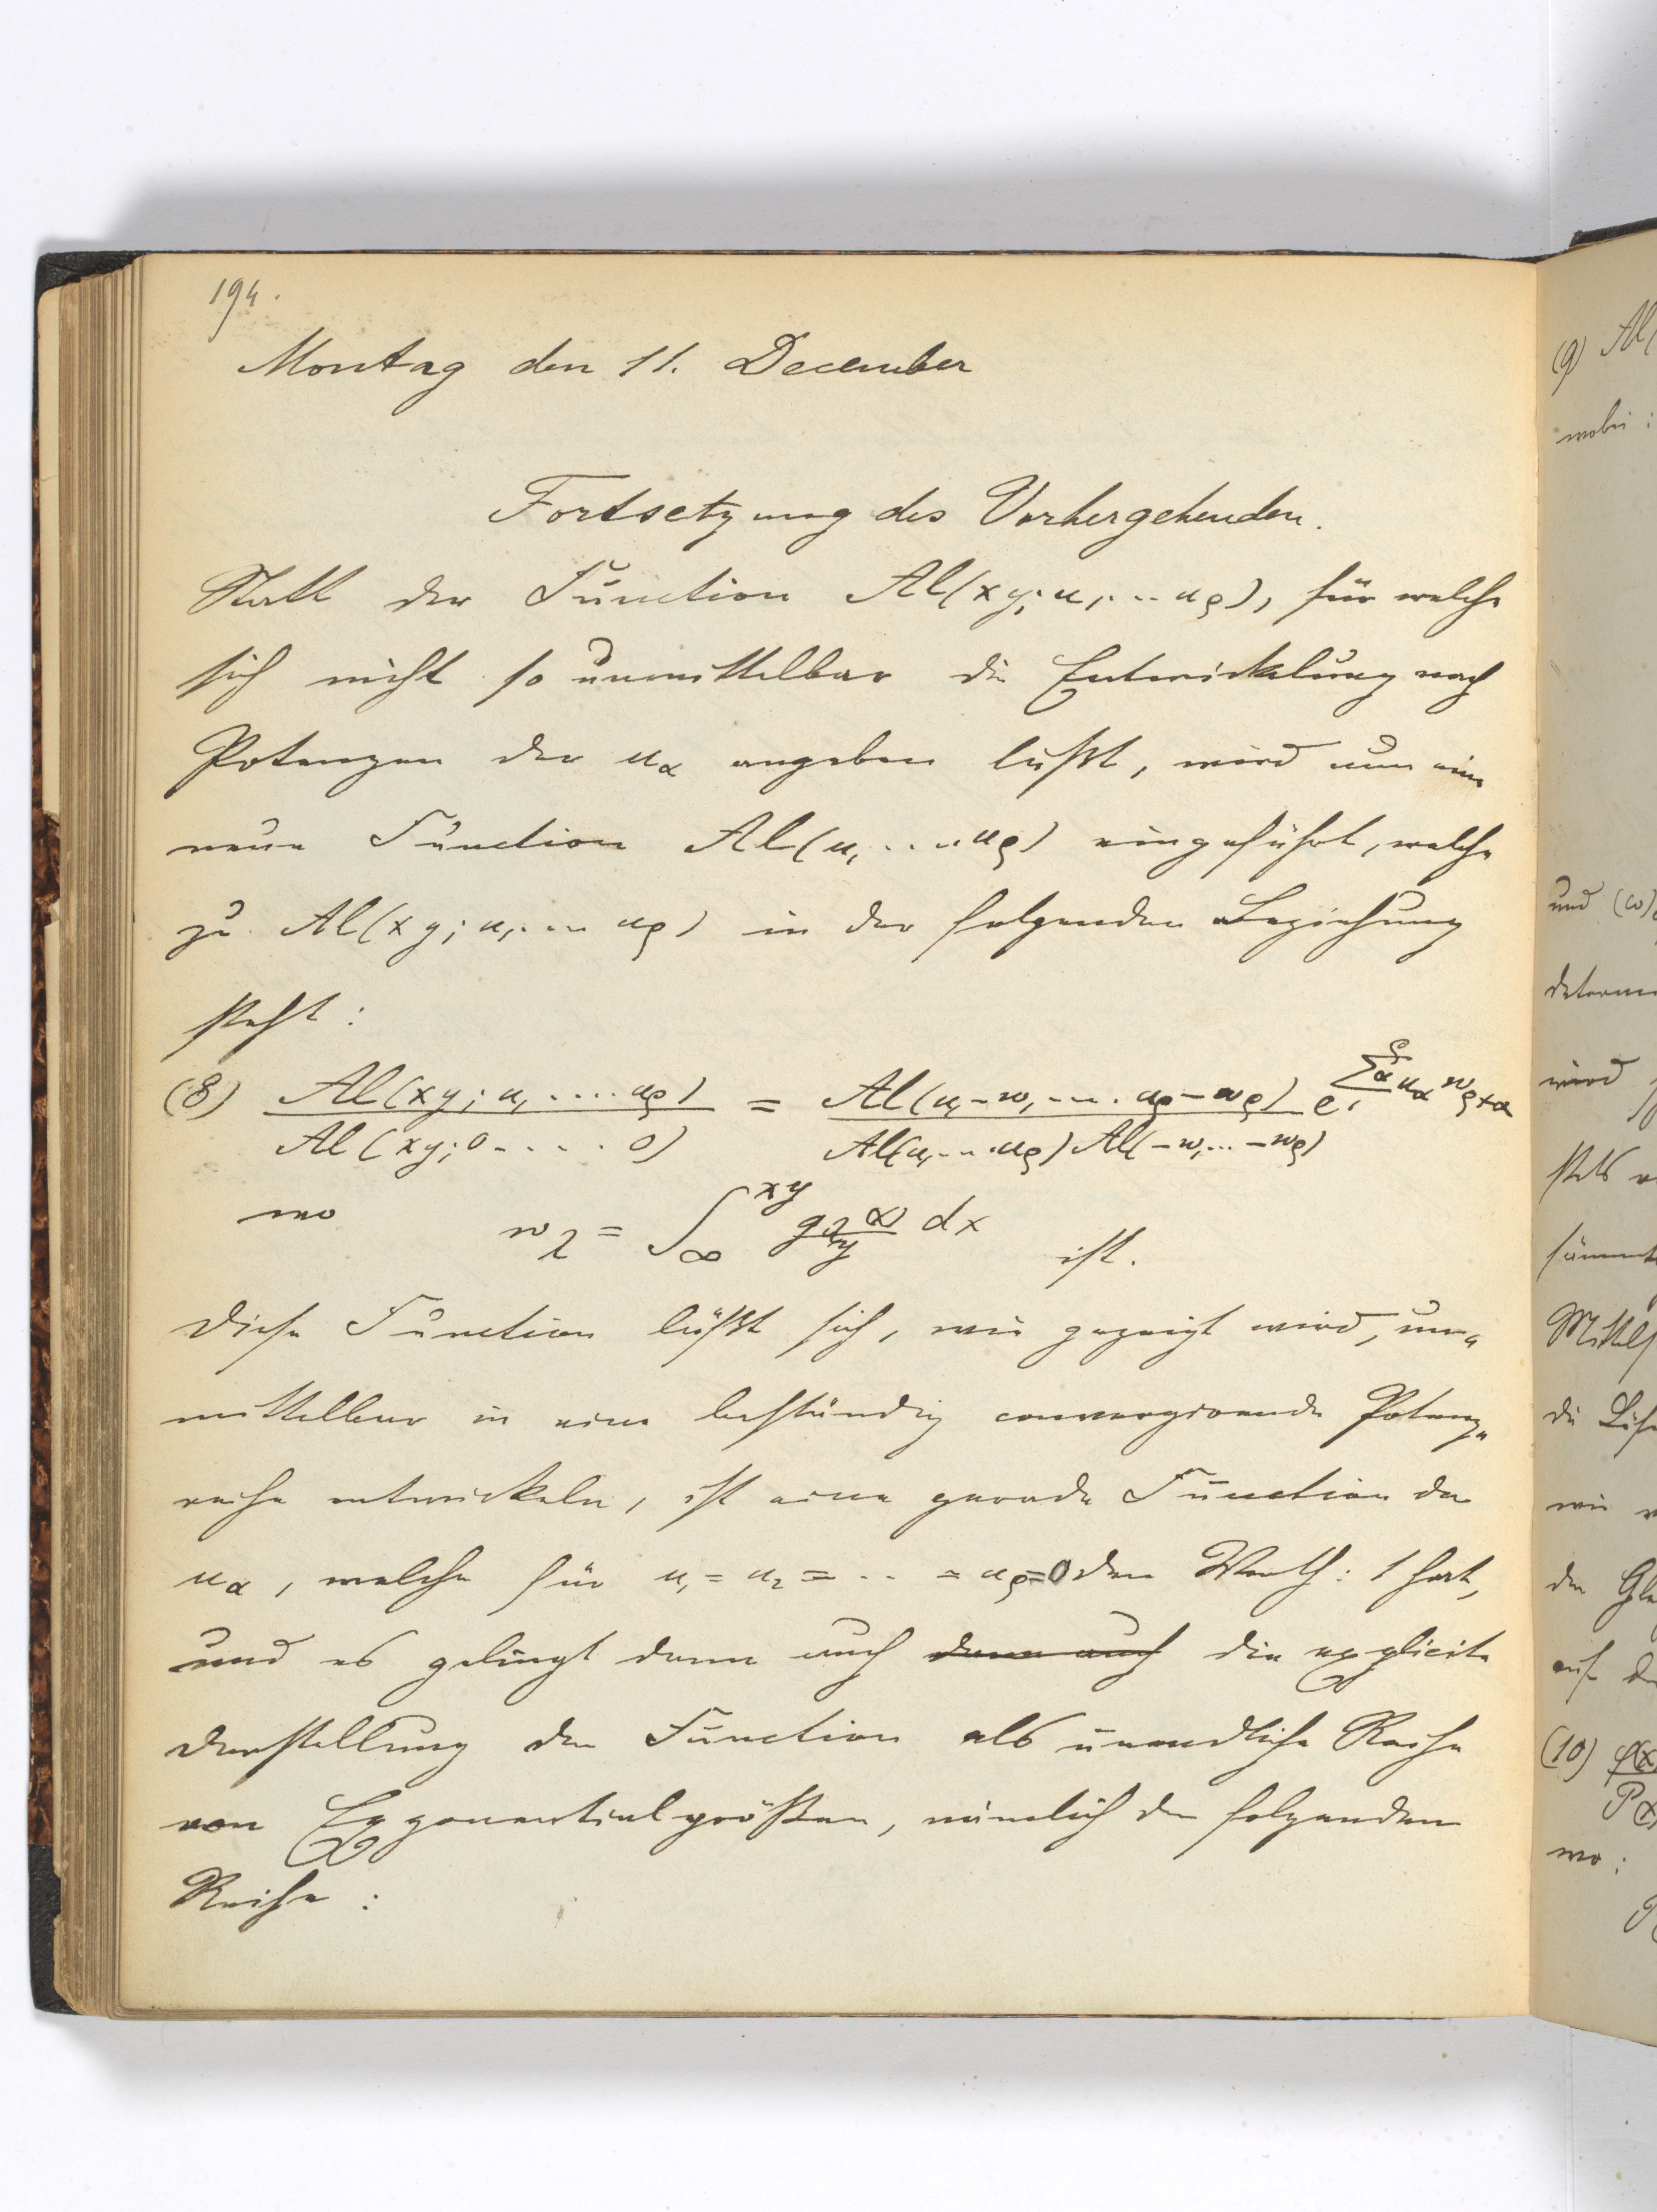 194.
Montag den 11. December
Fortsetzung des Vorhergehenden.
Statt der Function Al(xy; u₁...uρ), für welche
sich nicht so unmittelbar die Entwickelung nach
Potenzen der uα angeben läßt, wird nun eine
neue Function Al(u₁....uρ) eingeführt, welche
zu Al(xy; u₁.... uρ) in der folgenden Beziehung
steht:
(8) Al(xy; u₁.....uρ) / Al(xy; 0.....0) = Al(u₁-w₁.... uρ-wρ) / Al(u₁....uρ) Al(-w₁...-wρ) e^{Σα₁^ρ uα wρ+α}
wo wλ = ∫_∞^{xy} g(x)λ/y dx ist.
Diese Function läßt sich, wie gezeigt wird, un„
mittelbar in eine beständig convergirende Potenz„
reihe entwickeln, ist eine gerade Function der
uα, welche für u₁ = u₂ = .. = uρ = 0 den Werth: 1 hat,
und es gelingt dann auch dann auch die explicite
Darstellung der Function als unendliche Reihe
von Exponentialgrößen, nämlich der folgenden
Reihe:
(9) Al(
wobei:
und (ω)
determ
wird
stets
sämmt
Mittels
die
wie
der Gle
auf
(10)
wo: